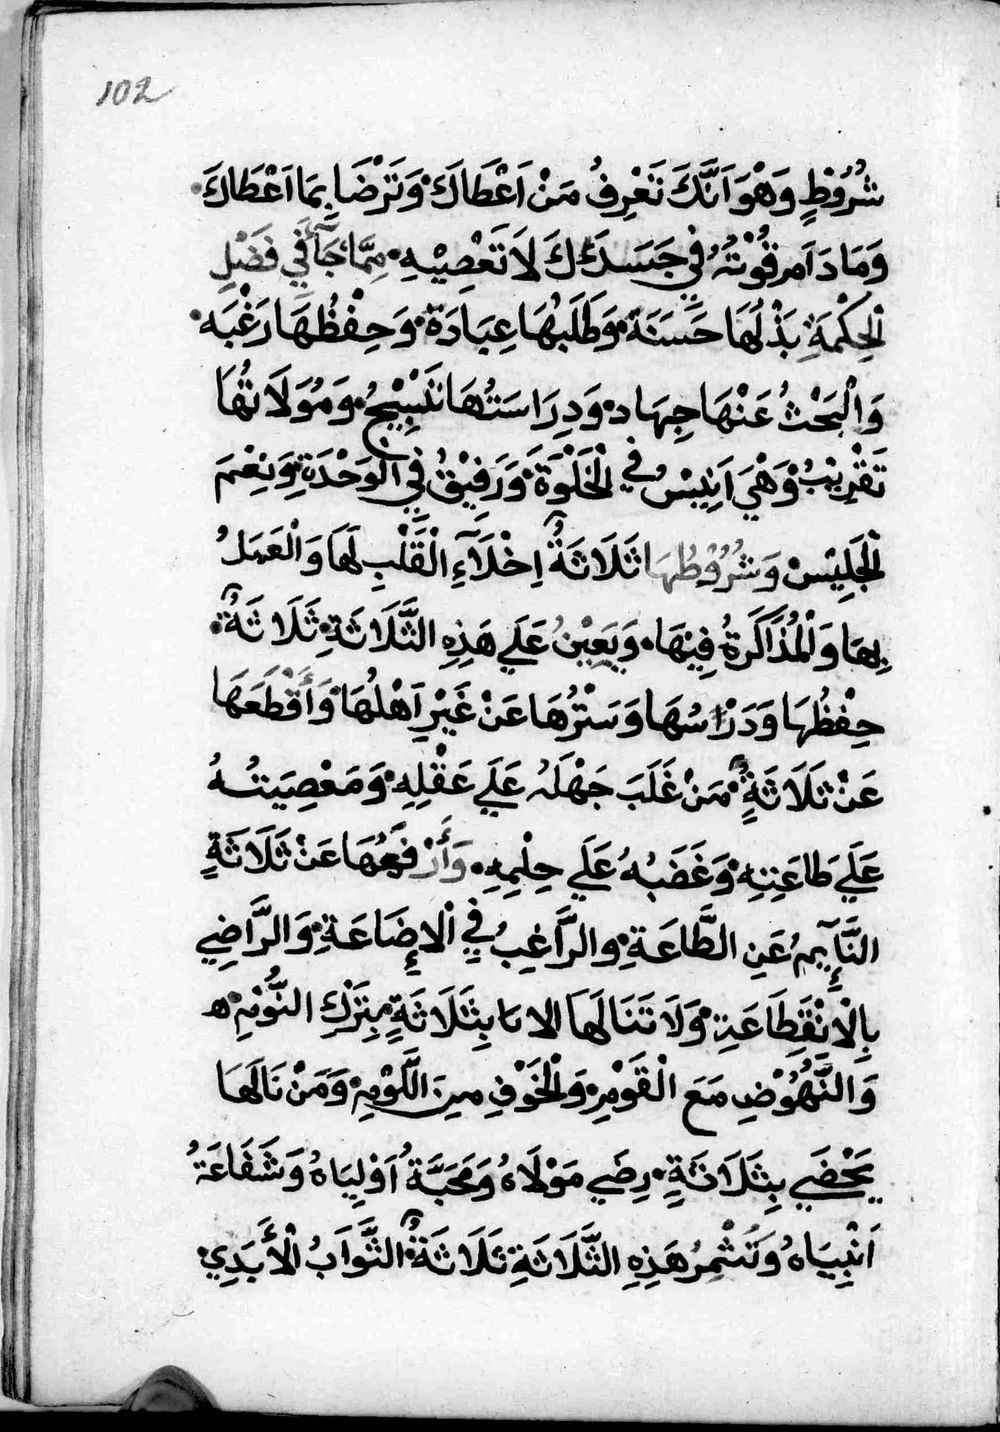 102
شُرُوْطٍ وَهْوَ اَنَّكَ تَعْرِفُ مَنْ اَعْطَاكَ۰ وَتَرْضَا بِمَا اَعْطَاكَ۰
وَمَا دَامَ قُوْتُهُ فِي جَسَدَكَ لَا تَعْصِيْهِ۰ مِمَّا جَآءَ فِي فَضْلِ
الْحِكْمَةِ بَذْلُهَا حَسَنَة۰ وَطَلَبُهَا عِبَادَة۰ وَحِفْظُهَا رَغْبَه۰
وَالْبَحْثُ عَنْهَا جِهَاد۰ وَدِرَاسَتُهَا تَسْبِيْحُ۰ وَمُوَلَاتُهَا
تَقْرِيْبُ۰ وَهْيَ اَنِيْسُ فِي الْخَلْوَةِ۰ وَرَفِيْقُ فِي الْوَحْدَةِ۰ وَنِعْمَ
الْجَلِيْسْ وَشُرُوْطُهَا ثَلَاثَةُ اِخْلَآءِ الْقَلْبِ لَهَا وَالْعَمَلُ
بِهَا وَالْمُذَاكَرَةُ فِيْهَا۰ وَيَعِيْنُ عَلَي هَذِهِ الثَّلَاثَةِ۰ ثَلَاثَةُ۰
حِفْظُهَا وَدَرَاسُهَا وَسَتْرُهَا عَنْ غَيْرِ اَهْلُهَا۰ وَأَقْطَعَهَا
عَنْ ثَلَاثَةٍ۰ مَنْ غَلَبَ جَهْلَهُ عَلَي عَقْلِهِ۰ وَمَعْصِيَتُهُ
عَلَي طَاعَتِهِ۰ وَغَضَبُهُ عَلَي حِلْمِهِ۰ وَأَرْفَعُهَا عَنْ ثَلَاثَةٍ
النَّآئِمُ عَنِ الطَّاعَةِ۰ والرَّاغِبُ فِي الْاِضَاعَةِ۰ وَالرَّاضِي
بِالْاِنْقَطَاعَةِ۰ وَلَا تَنَالَهَا الا بِثَلَاثَةٍ۰ بِتَرْكِ النَّوْمِ۰ ه
وَالنُّهُوْضِ مَعَ الْقَوْمِ۰ وَالْخَوْفِ مِنَ اللَّوْمِ۰ وَمَنْ نَالَهَا
يَحْضَي بِثَلَاثَةٍ۰ رِضَي مَوْلَاهُ وَمَحَبَّةُ اَوْلِيَاهُ وَشَفَاعَةُ
اَنْبِيَاهُ وَتُثْمِرُ هَذِهِ الثَّلَاثَةِ ثَلَاثَةُ۰ الثَّوَابُ الْأَبَدِي۰